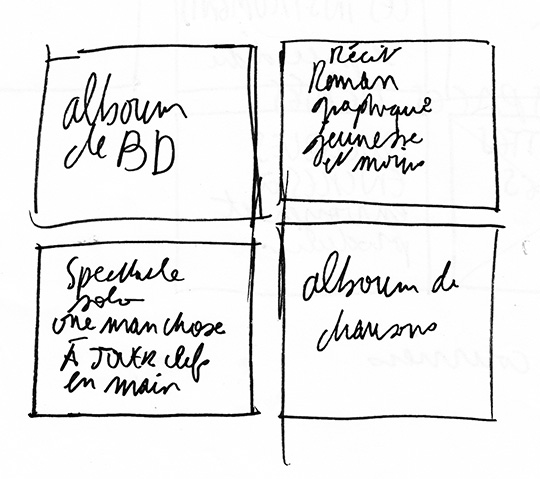 alboum
de BD
Récit
Roman
graphique
jeunesse
et moins
Spectacle
solo
one man chose
À JOUER clefs
en main
alboum de
chansons